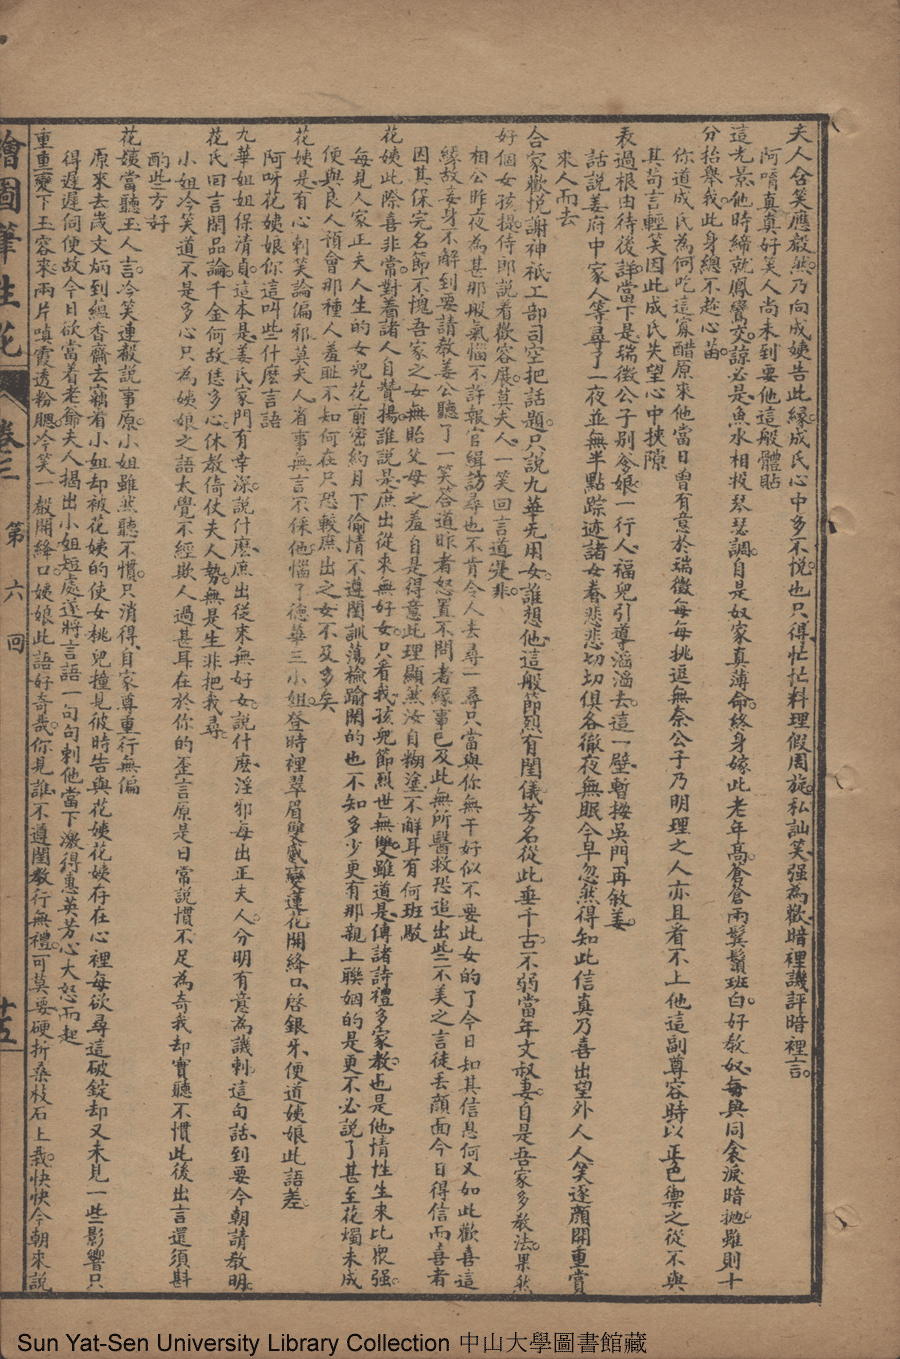 夫人含笑應嚴然。乃向成姨告此緣。成氏心中多不悦。也只得忙忙料理假周旋。私訕笑。强為歡。暗裡譏評暗裡言。
阿唷真真好笑人尚未到要他這般體貼
這光景他時締就鳳鸞交。諒必是魚水相投琴瑟調。自是奴家真薄命。終身嫁此老年高。蒼蒼兩鬢鬚班白。好教奴每與同衾淚暗抛。雖則十
分抬舉我。此身總不趁心苗。
你道成氏為何吃這寡醋原來他當日曽有意於瑞徵每每挑逗無奈公子乃明理之人亦且看不上他這副尊容時以正色禦之從不與
其苟言輕笑因此成氏失望心中挾隙
表過根由待後詳。當下是瑞徵公子别爹娘。一行人福兒引導滔滔去。這一壁暫按吳門再敘姜。
話說姜府中家人等尋了一夜並無半點踪迹諸女眷悲悲切切俱各徹夜無眠今早忽然得知此信真乃喜出望外人人笑逐顔開重賞
來人而去
合家歡悦謝神祇。工部司空把話題。只說九華无用女。誰想他這般節烈有閨儀。芳名從此垂千古。不弱當年文叔妻。自是吾家多教法。果然
好個女孩提。侍郎說着歡容展。莫夫人一笑回言道㠯非。
相公昨夜為甚那般氣惱不許報官緝訪尋也不肯令人去尋一尋只當與你無干好似不要此女的了今日如其信息何又如此歡喜這
緣故妾身不解到要請教姜公聽了一笑荅道昨者怒置不問者緣事已及此無所醫救恐追出些不美之言徒丢顔面今日得信而喜者
因其保完名節不愧吾家之女無貽父母之羞自是得意此理顯然汝自糊塗不觧耳有何班駁
花姨此際喜非常。對着諸人自贊揚。誰說是庶出從來無好女。只看我孩兒節烈世無雙。雖道是傳諸詩禮多家教。也是他情性生來比衆强。
每見人家正夫人生的女兒花前密約月下偷情不遵閨訓蕩檢踰閑的也不知多少更有那親上聯姻的是更不必說了甚至花燭未成
便與良人預會那種人羞耻不知何在只恐較庶出之女不及多矣
花姨是有心刺笑論偏邪。莫夫人省事無言不倸他。惱了德華三小姐。登時裡翠眉雙蹙變蓮花。開絳口。啓銀牙。便道姨娘此語差。
阿呀花姨娘你這叫些什麽言語
九華姐姐保清貞。這本是姜氏家門有幸深。說什麽庶出從來無好女。說什麽淫邪每出正夫人。分明有意為譏刺。這句話到要今朝請教明。
花氏回言閑品論。千金何故恁多心。休教倚仗夫人勢。無是生非把我尋。
小姐冷笑道不是多心只為姨娘之語太覺不經欺人過甚耳在於你的歪言原是日常說慣不足為奇我却實聽不慣此後出言還須斟
酌些方好
花姨當聽玉人言。冷笑連聲說事原。小姐雖然聽不慣。只消得自家尊重行無偏
原來去歲文炳到緼香齋去竊看小姐却被花姨的使女桃兒撞見彼時告與花姨花姨存在心裡每欲尋這破錠却又未見一些影響只
得遲遲伺便故今日欲當着老爺夫人揭出小姐短處遂將言語一句句刺他當下激得惠英芳心大怒而起
重重變下玉容來。兩片嗔霞透粉腮。冷笑一聲開絳口。姨娘此語好奇哉。你見誰不遵閨教行無禮。可莫要硬折桑枝石上栽。快快今朝來說
繪圖筆生花
卷三
第六回
十五
Sun Yat-Sen University Library Collection 中山大學圖書館藏